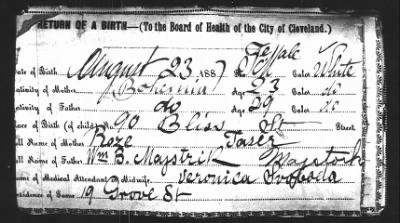 RETURN OF A BIRTH—(To the Board of Health of the City of Cleveland.)
Female
Date of Birth, August 23, 1887 Sex Color White
Nativity of Mother Bohemia Age 23 Color do
Nativity of Father do Age 29 Color do
Place of Birth (of child) No. 90 Bliss St Street
Full Name of Mother Roze
Full Name of Father Wm B. Majstrik
Name of Medical Attendant or Midwife, Veronica Svoboda
Residence of Same 19 Grove St